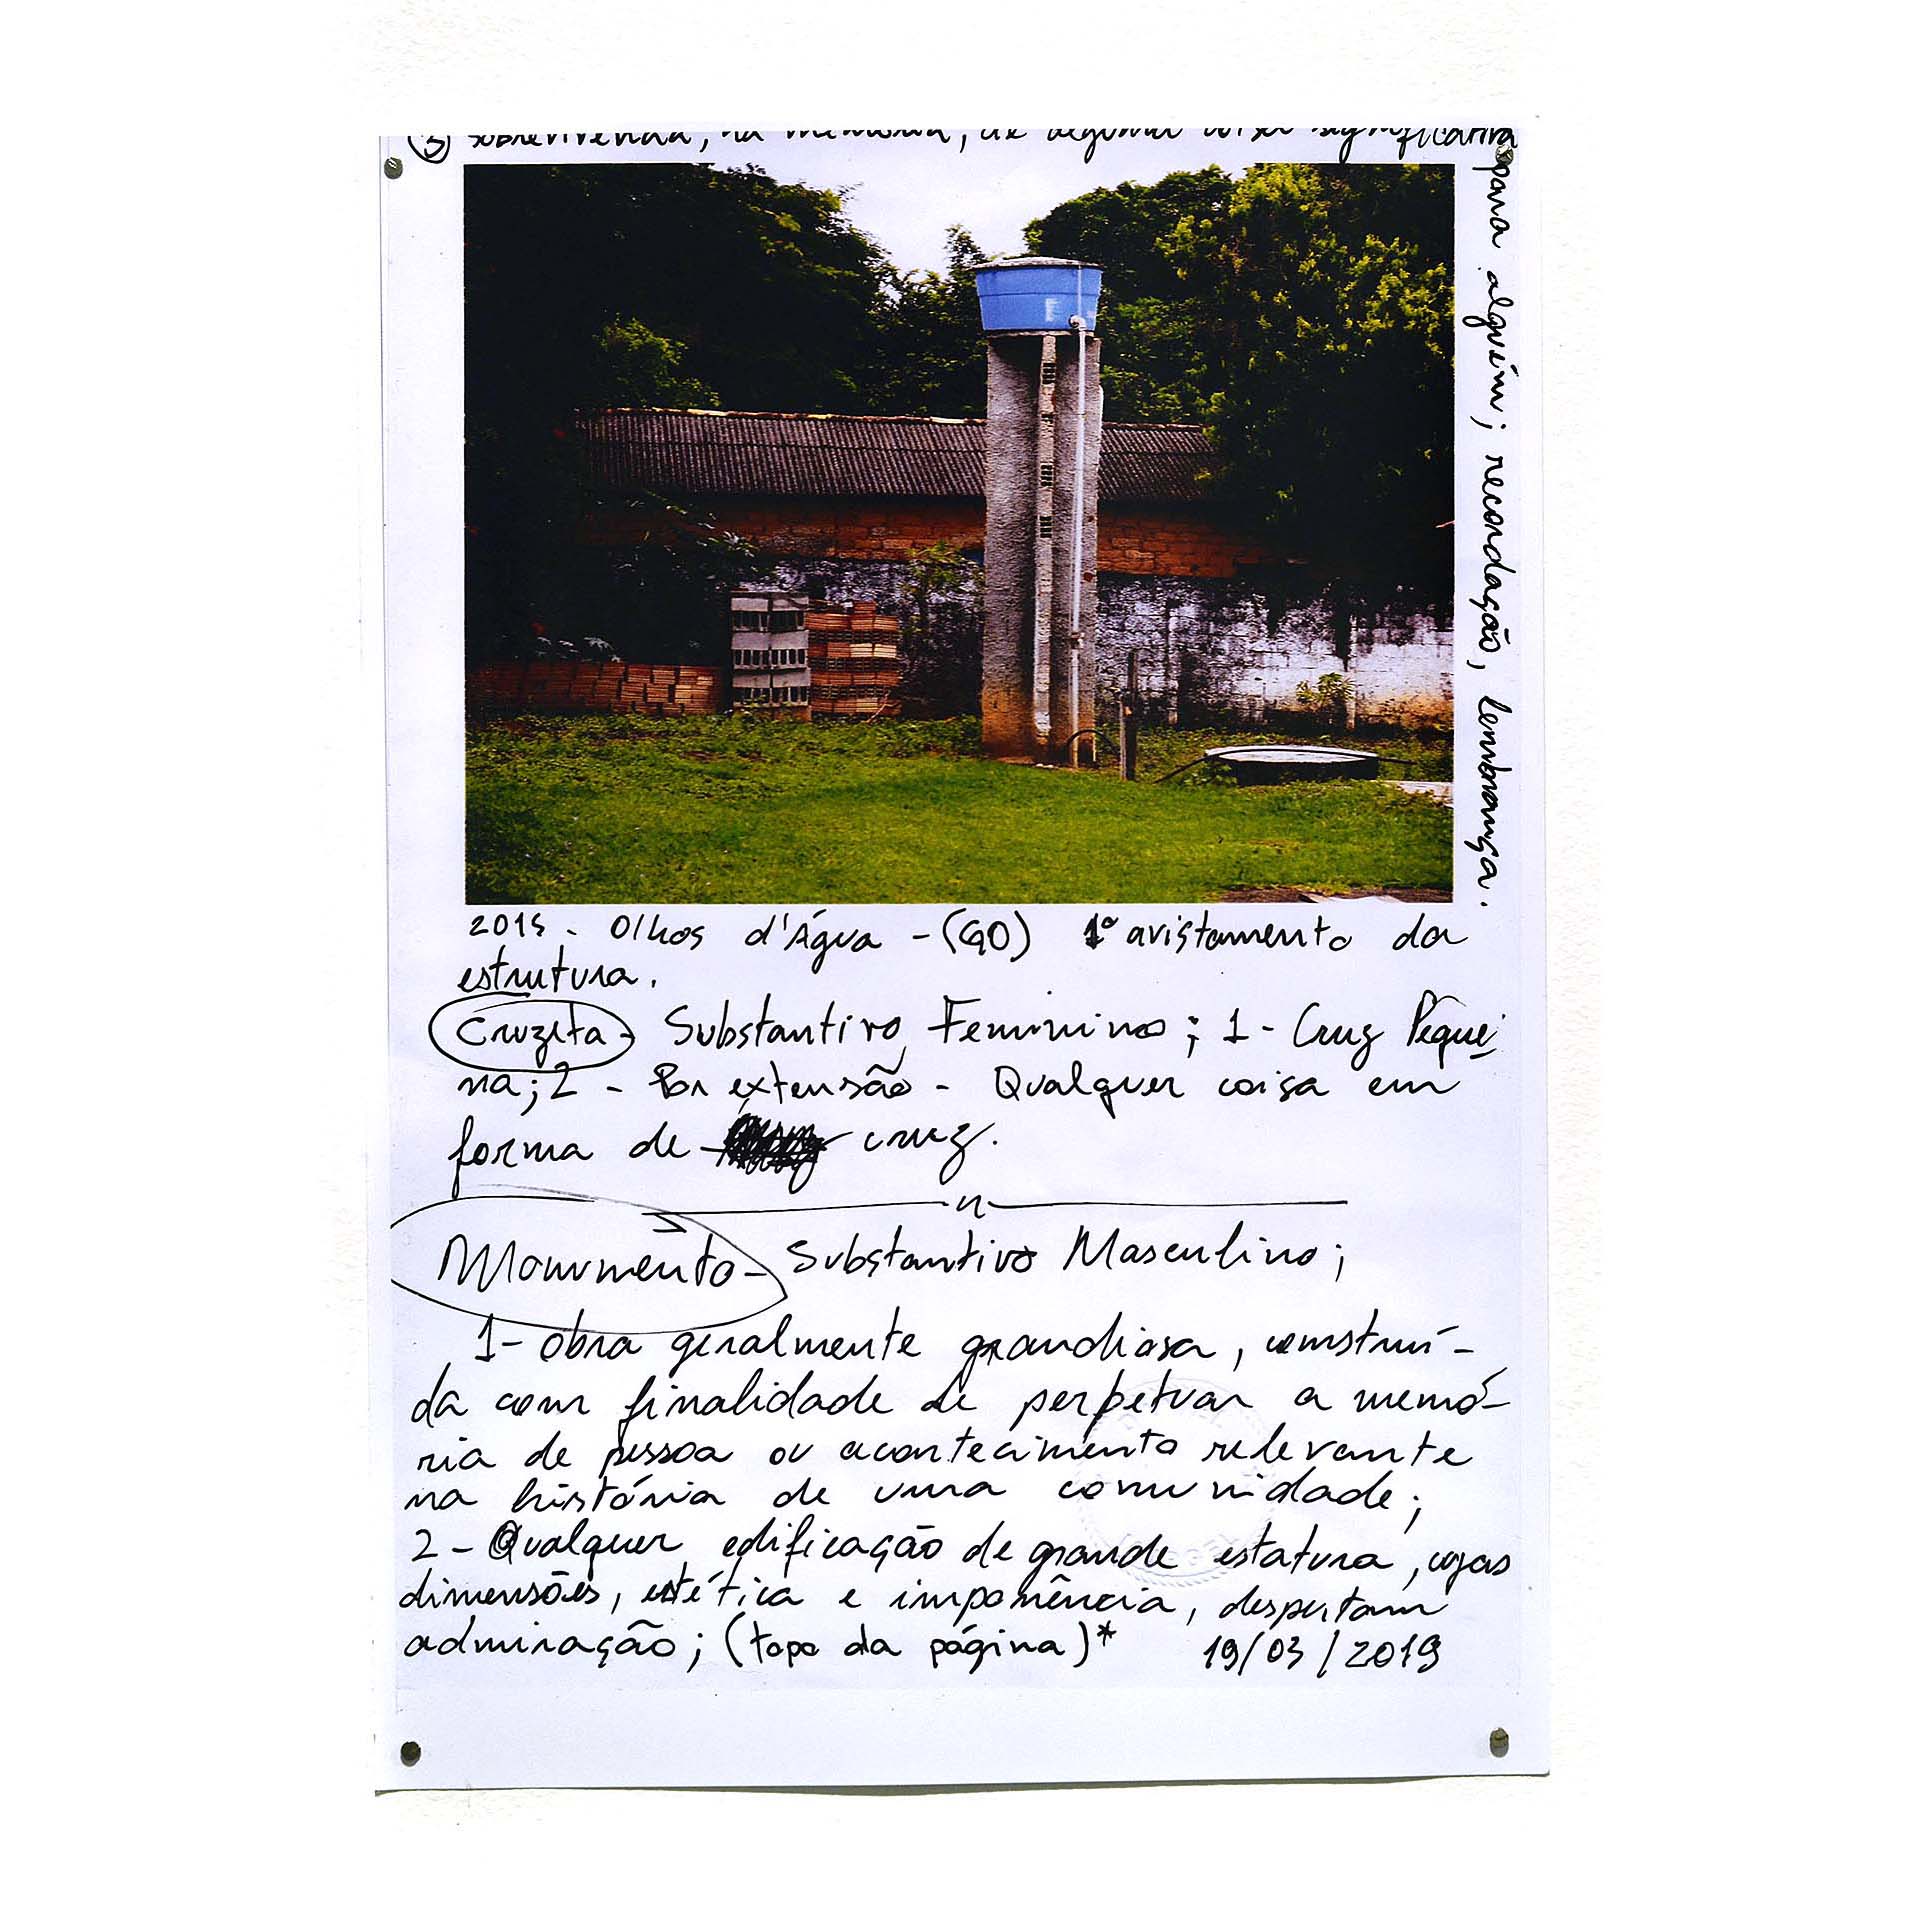 ③ sobrevivência, na memória, de alguma coisa significativa
para alguém; recordação, lembrança.
2015 - Olhos d'Água - (GO) 1º avistamento da
estrutura.
Cruzeta - Substantivo Feminino; 1 - Cruz Peque
na; 2 - Por extensão - Qualquer coisa em
forma de cruz.
Monumento - Substantivo Masculino;
1 - obra geralmente grandiosa, construí-
da com finalidade de perpetuar a memó-
ria de pessoa ou acontecimento relevante
na história de uma comunidade;
2 - Qualquer edificação de grande estatura, cujas
dimensões, estética e imponência, despertam
admiração; (topo da página)* 19/03/2019